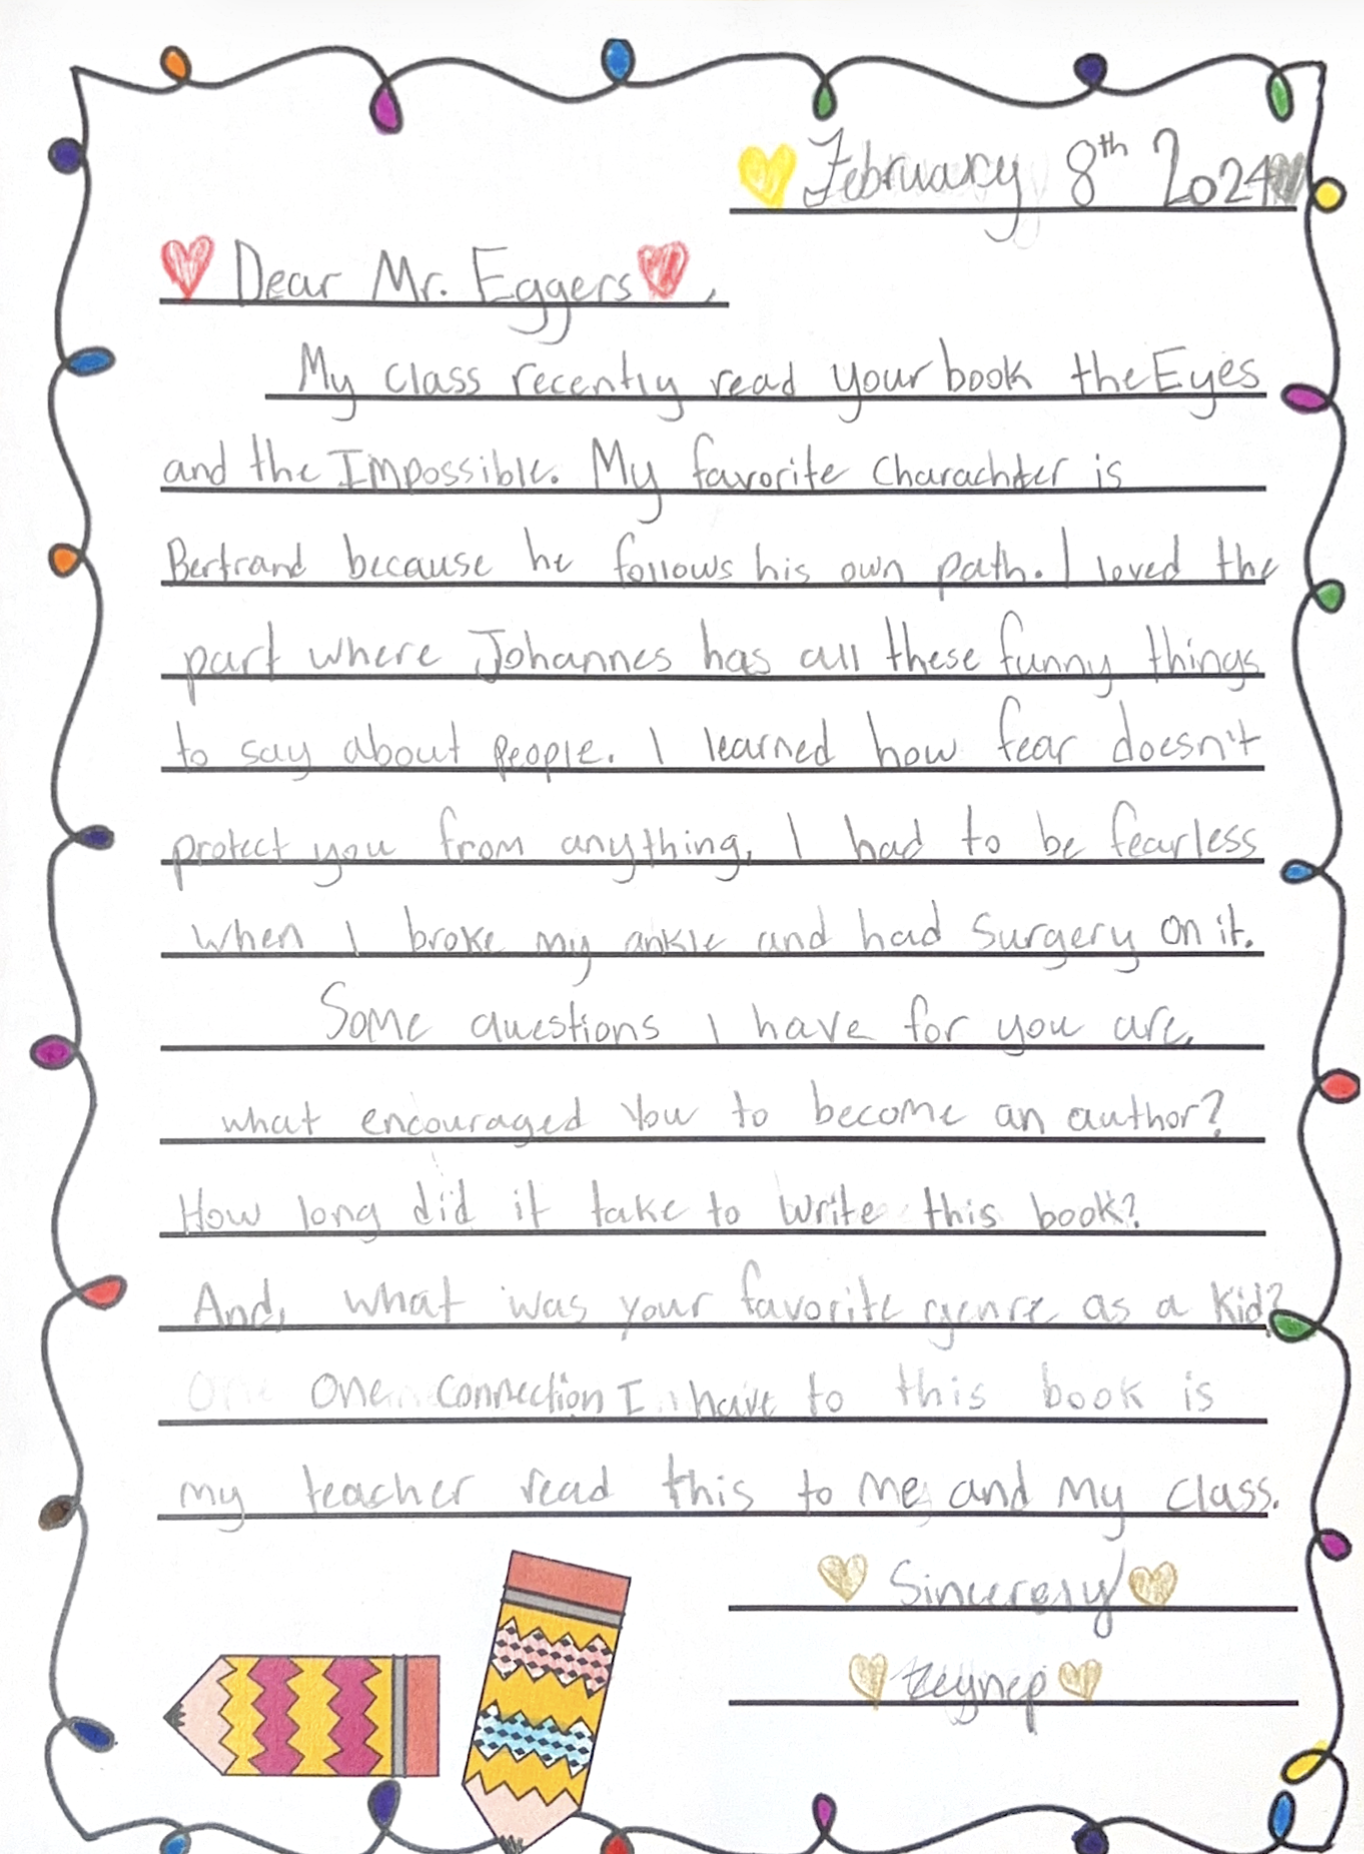 February 8th 2024
Dear Mr. Eggers,
My class recently read your book the Eyes
and the Impossible. My favorite charachter is
Bertrand because he follows his own path. I loved the
part where Johannes has all these funny things
to say about people. I learned how fear doesn't
protect you from anything, I had to be fearless
when I broke my ankle and had surgery on it.
Some questions I have for you are,
what encouraged you to become an author?
How long did it take to write this book?
And, what was your favorite genre as a kid?
One connection I have to this book is
my teacher read this to me, and my class.
Sincerely
Zeynep